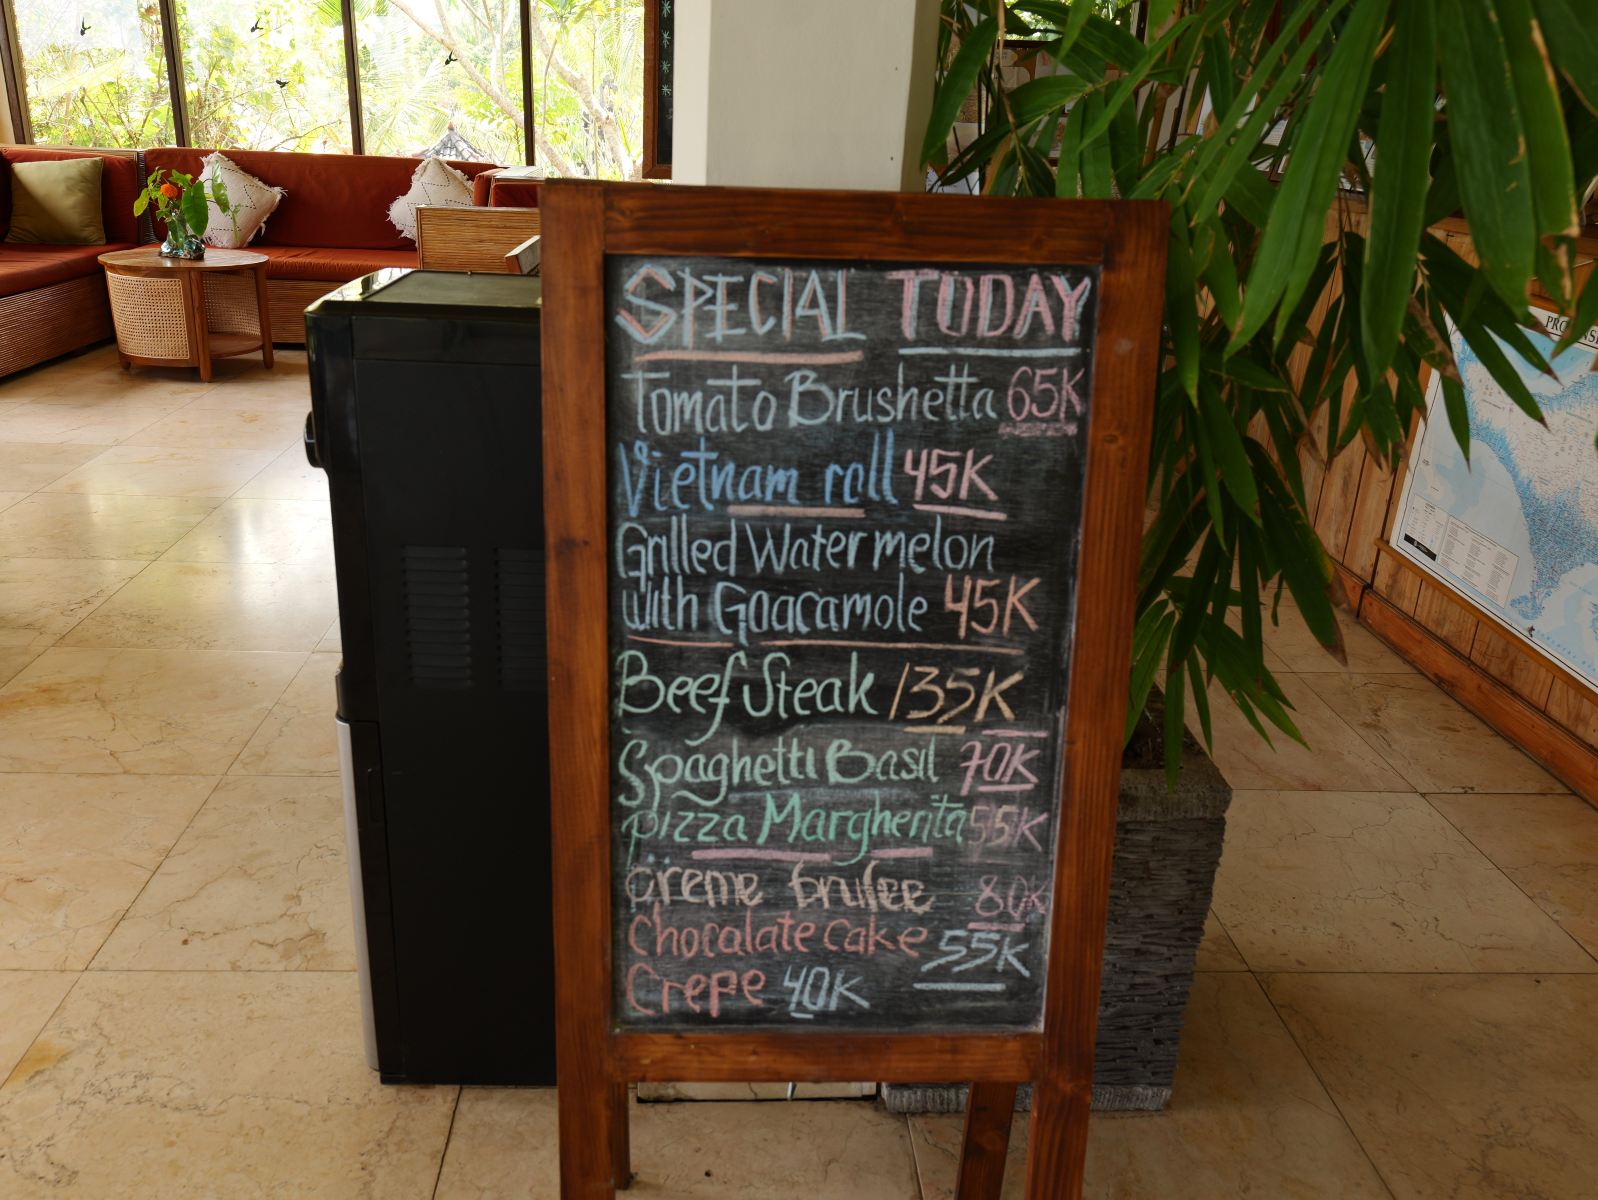 SPECIAL TODAY
Tomato Brushetta 65K
Vietnam roll 45K
Grilled Water melon
with Goacamole 45K
Beef Steak 135K
Spaghetti Basil 70K
pizza Margherita 55K
creme brulee 80K
Chocalate cake 55K
Crepe 40K